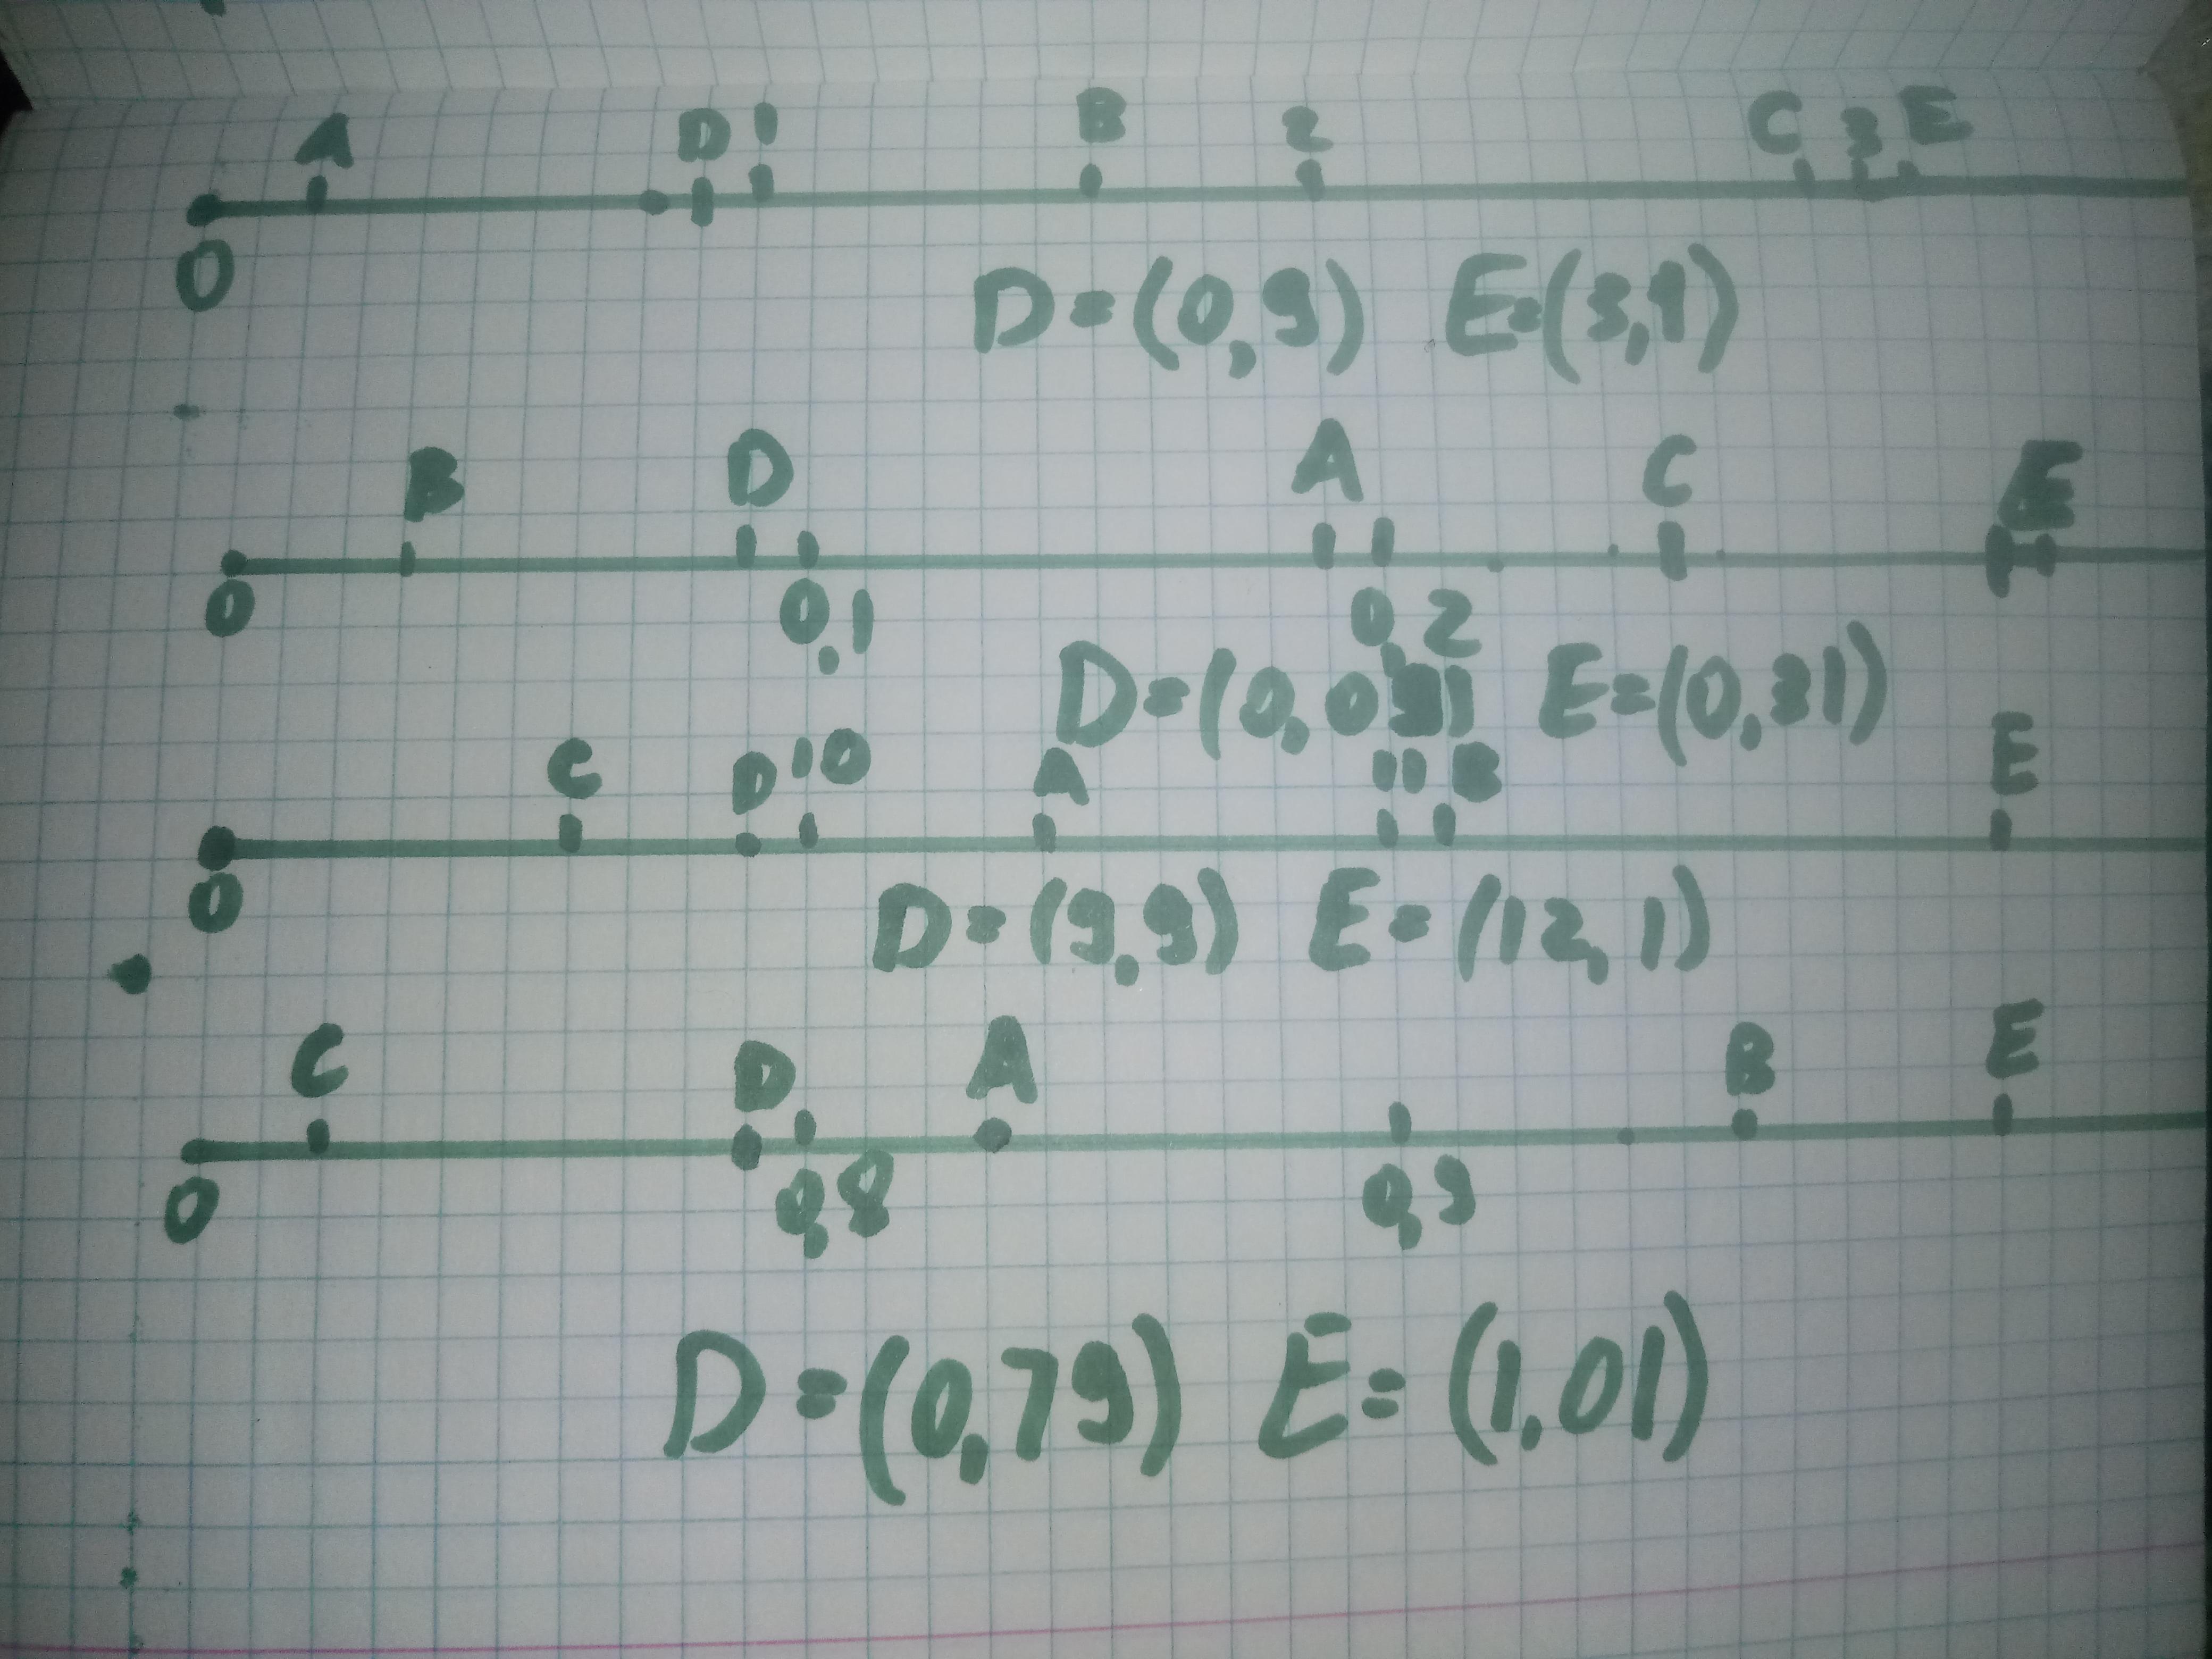 A D 1 B 2 C 3 E
0
D=(0,9) E=(3,1)
B D A C E
0 0,1 0,2
D=(0,09) E=(0,31)
C D 10 A 11 B E
0
D=(9,9) E=(12,1)
C D A B E
0 0,8 0,9
D=(0,79) E=(1,01)